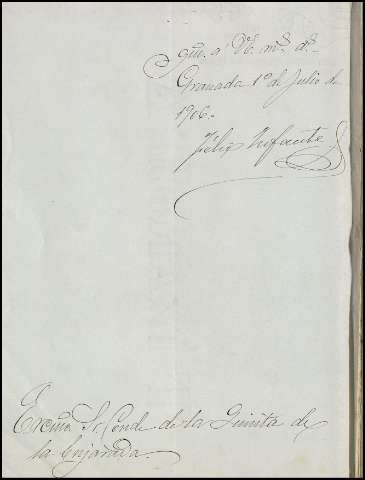 gue. á Vd. ms. as.
Granada 1º de Julio de
1906.-
Félix Infante
Excmo Sr Conde de la Quinta de
la Enjarada.